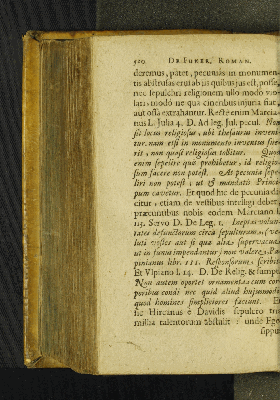 520 DE FUNER. ROMAN.
deremus, patet, pecunias in monumen-
tis abstrusas erui ab iis quibus jus est, posse,
nec sepulchri religionem ullo modo vio-
lari: modo ne qua cineribus injuria fiat,
aut ossa extrahantur. Recte enim Marcia-
nus L. Julia 4. D. Ad leg. Jul. pecul. Non
sit locus religiosus, ubi thesaurus inveni-
tur. nam etsi in monumento inventus fue-
rit, non quasi religiosus tollitur. Quod
enim sepelire quis prohibetur, id religio-
sum facere non potest. At pecunia sepe-
liri non potest, ut & mandatis Princi-
pum cavetur. Et quod hic de pecunia di-
citur, etiam de vestibus intelligi debet,
præeuntibus nobis eodem Marciano l.
113. Servo D. De Leg. 1. Ineptas volun-
tates defunctorum circa sepulturam, (ve-
luti vestes aut si qua alia supervacua
ut in funus impendantur) non valere, Pa-
pinianus libr. III. Responsorum scribit.
Et Ulpiano l. 14. D. De Relig. & sumpt.
Non autem oportet ornamenta cum cor-
poribus condi nec quid aliud hujusmodi
quod homines simpliciores faciunt. Et
sic Hircanus è Davidis sepulcro tria
millia talentorum abstulit: unde